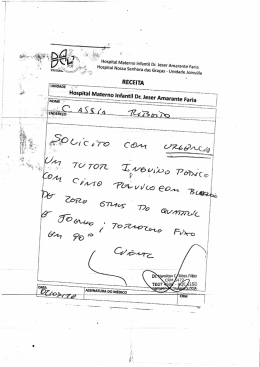 Hospital Materno Infantil Dr. Jeser Amarante Faria
Hospital Nossa Senhora das Graças - Unidade Joinville
RECEITA
UNIDADE
Hospital Materno Infantil Dr. Jeser Amarante Faria
NOME
CASSIA RIBEIRO
ENDEREÇO
SOLICITO COM URGENCIA
UM TUTOR
COM CINTO PELVICO COM
DE ZERO GRAUS DO QUADRIL
E JOELHO; TORNOZELO FIXO
EM 90º
DATA
ASSINATURA DO MÉDICO
CRM